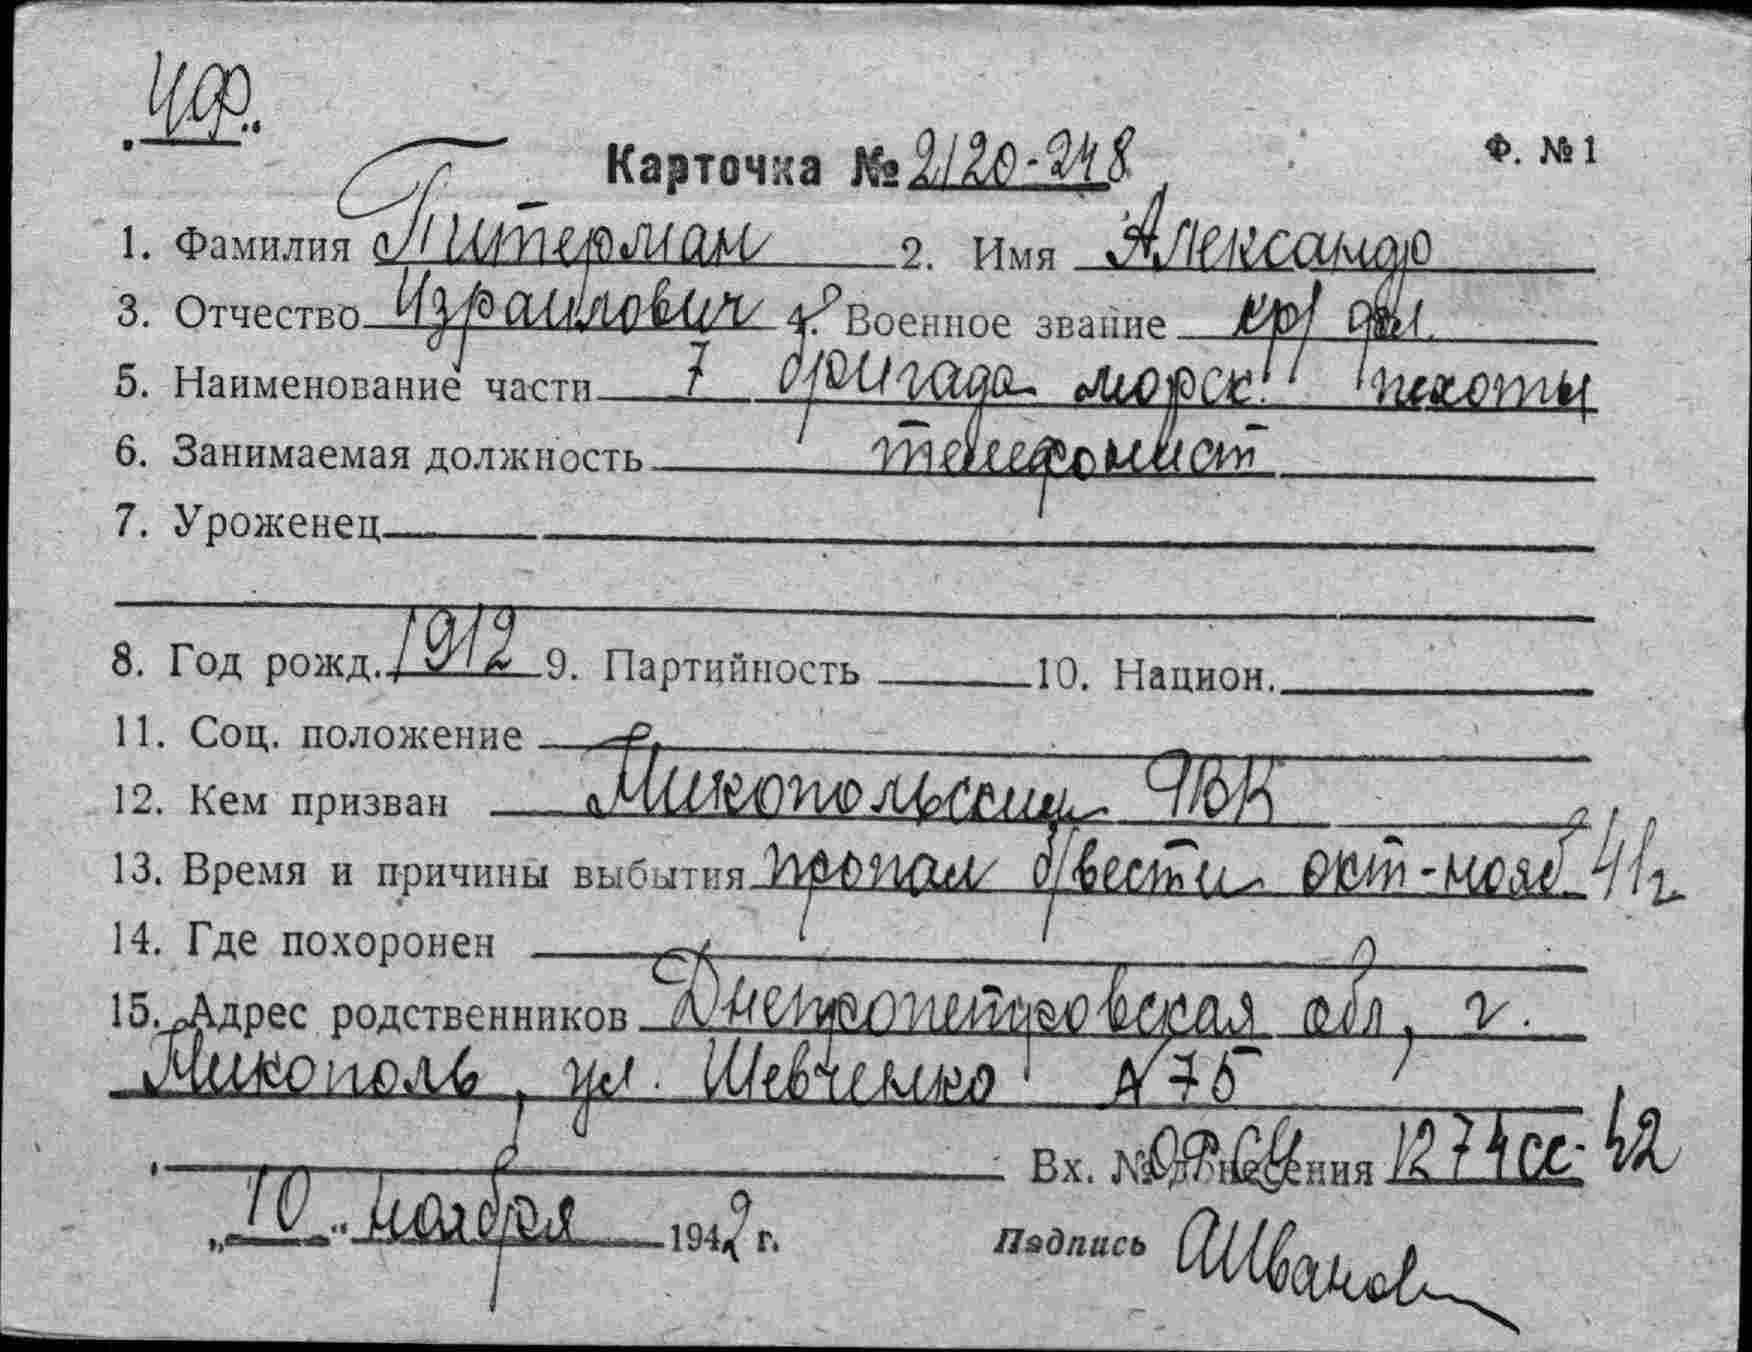 ЧФ.
Карточка № 2120-248
Ф. № 1
1. Фамилия Питерман 2. Имя Александр
3. Отчество Израилович 4. Военное звание кр/фл.
5. Наименование части 7 бригада морск. пехоты
6. Занимаемая должность телефонист
7. Уроженец
8. Год рожд. 1912 9. Партийность 10. Национ.
11. Соц. положение
12. Кем призван Никопольским РВК
13. Время и причины выбытия пропал б/вести окт-нояб 41г
14. Где похоронен
15. Адрес родственников Днепропетровская обл, г.
Никополь, ул. Шевченко № 75
Вх. № донесения 1274сс-42
„10" ноября 1942 г. Подпись АИванов